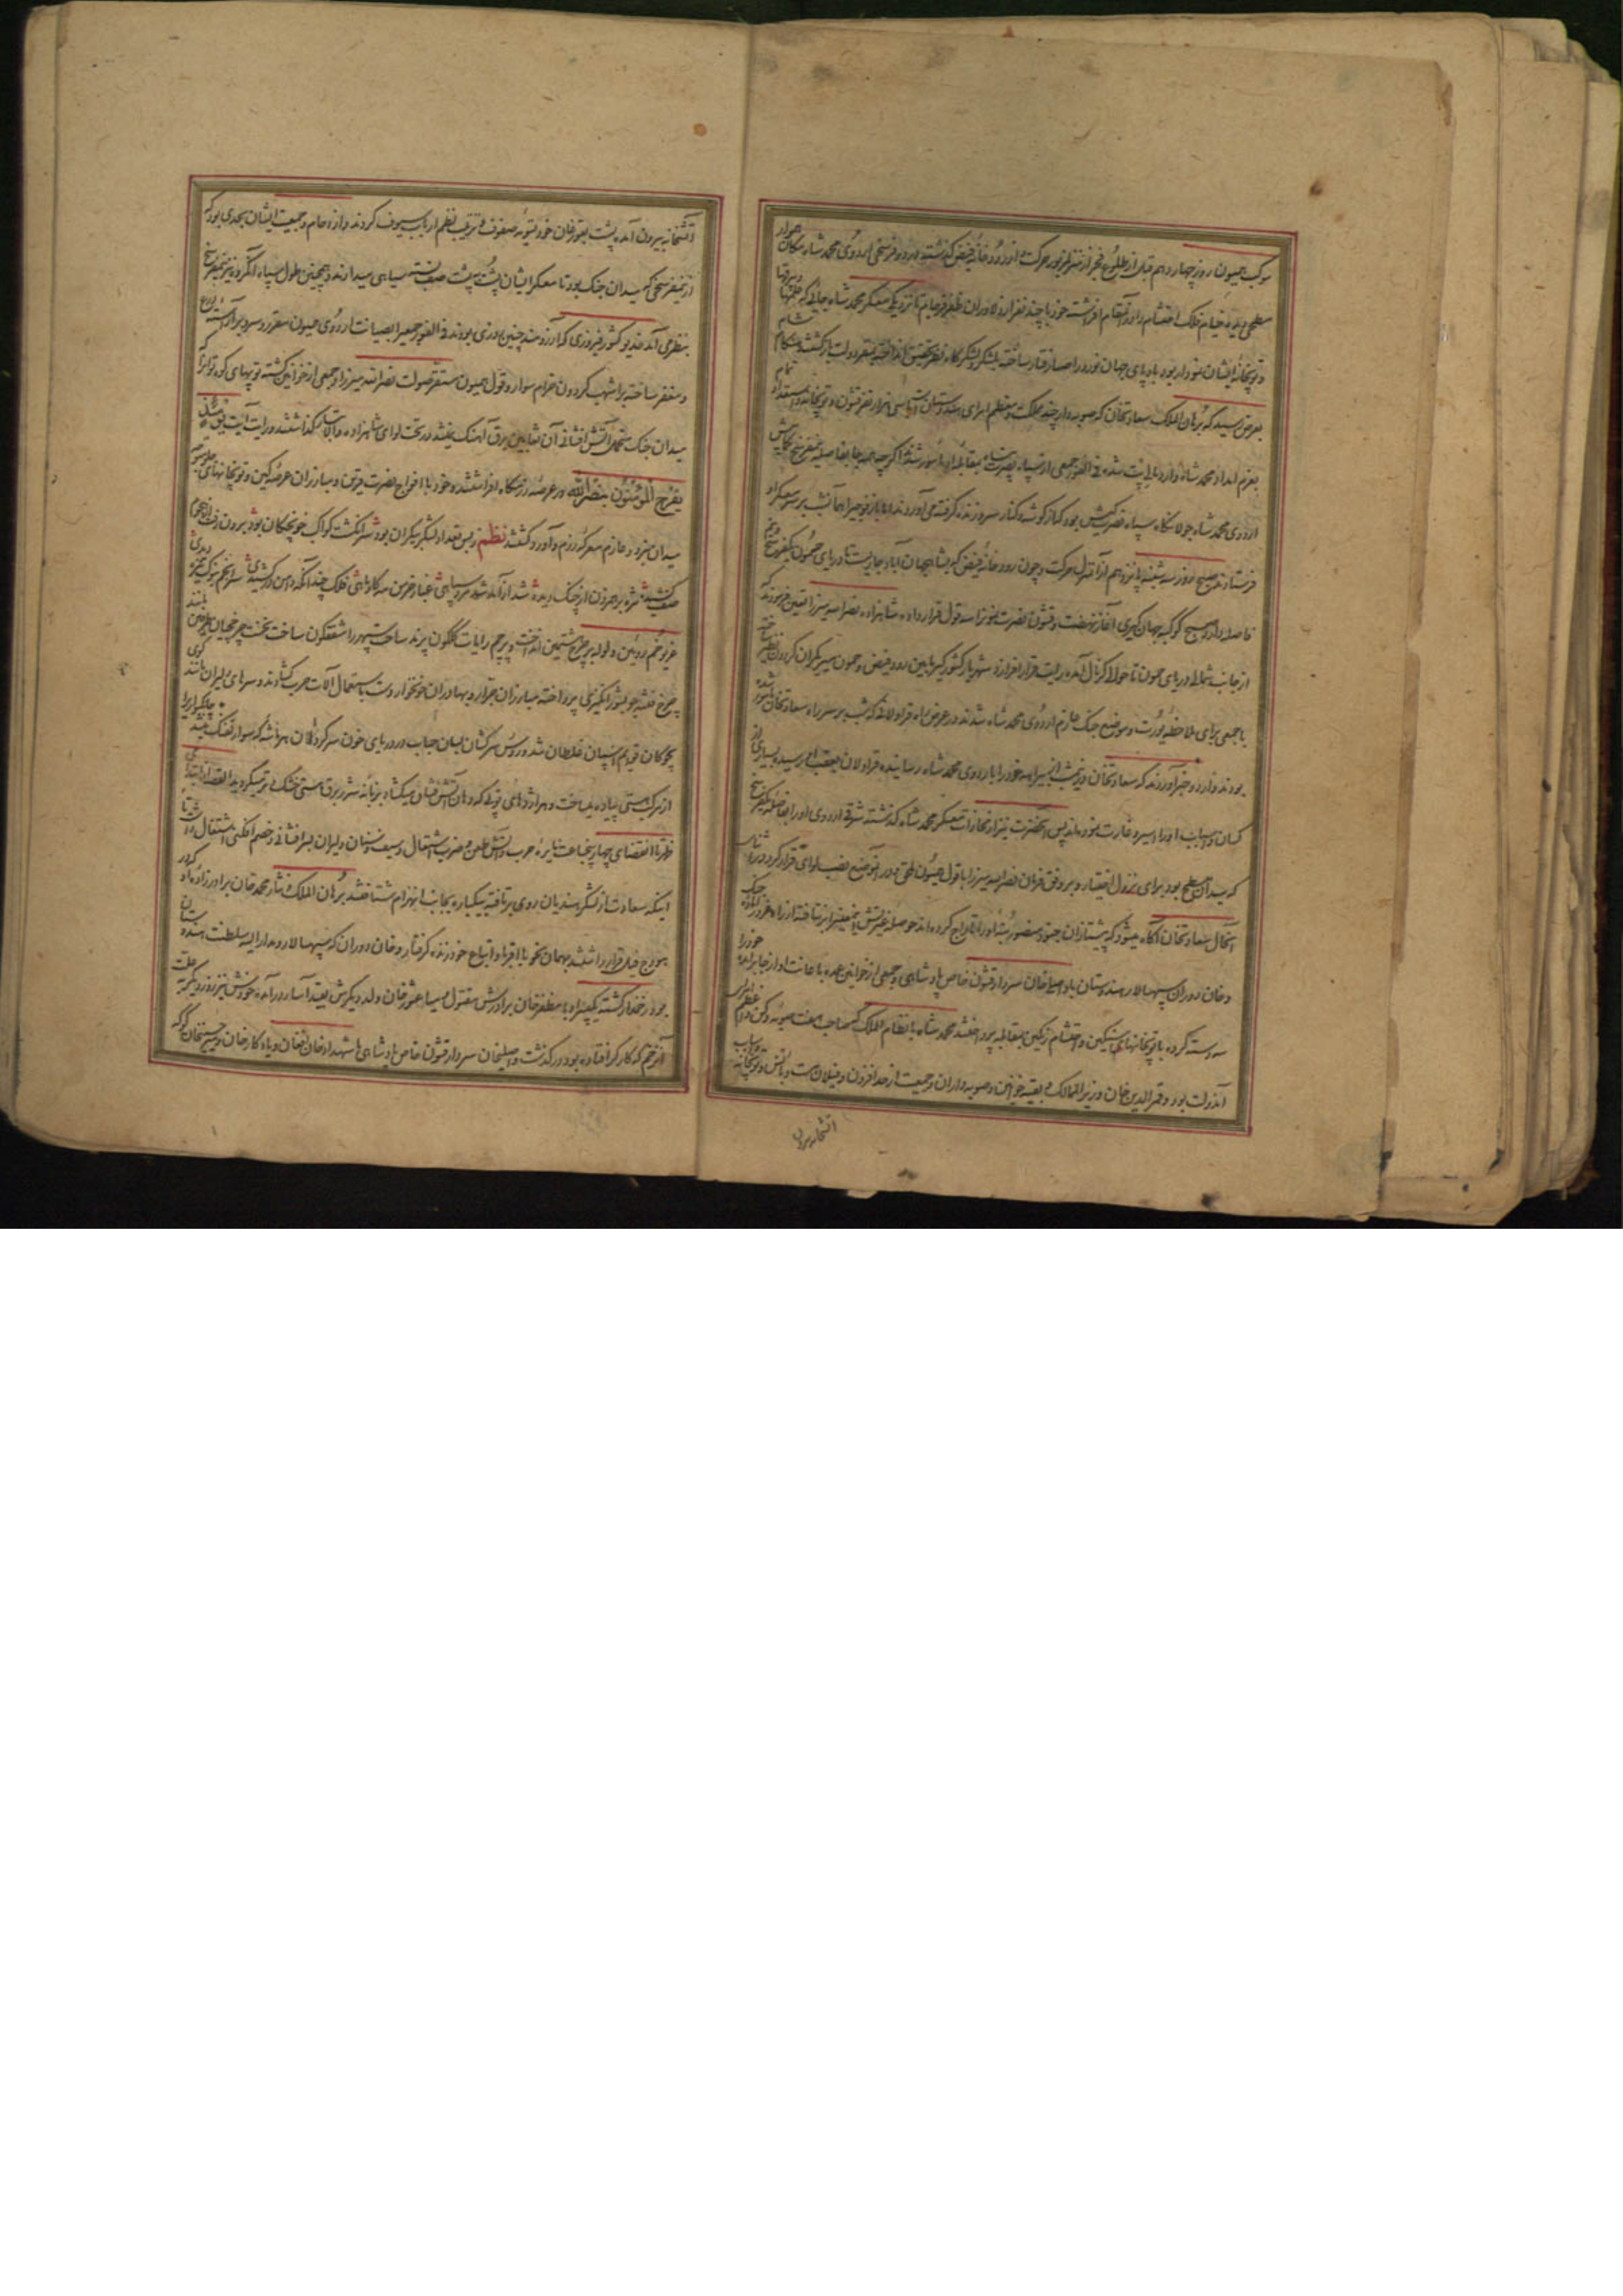 موکب همیون روز چهاردهم قبل از طلوع فجر از منزل مزبور حرکت و از رودخانهٔ فیض گذشته در دو فرسخی اردوی محمد شاه مکان هموار
مسطحی دیده خیام فلک احتشام را در آنمقام افراشته خود با چند نفر از دلاوران ظفر فرجام تا نزدیکی معسکر محمد شاه جائی که علمها و بیرقها
و توپخانهٔ ایشان نمودار بود بادپای جهان نورد را صبا رفتار ساخته لشکر و لشکرگاه بنظر تحقیق انداخته بمقر دولت بازگشتند هنگام شام
بعرض رسید که برهان الملک سعادتخان که صوبه دار چند مملکت و معظم امرای هندوستان است با سی هزار نفر قشون و توپخانه و استعداد تمام
بعزم امداد محمد شاه وارد پانی پت شده فی الفور جمعی از سپاه نصرت پناه بمقابلهٔ او مامور شدند اگرچه همه جا بفاصلهٔ نیم فرسخ
اردوی محمد شاه جولانگاه سپاه نصرت کیش بود که از گوشه و کنار سر و زنده گرفته می آوردند اما باز فوجی را آنشب بر سر معسکر او
فرستادند صبح روز سه شنبه پانزدهم از آن منزل حرکت و چون رودخانهٔ فیض که بشاهجهان آباد جاریست تا دریای جمون یکفرسخ
فاصله دارد صبح کوکبهٔ جهانگیری آغاز نهضت و قشون نصرت نمون را سه قول قرار داده شاهزاده نصر الله میرزا تعین فرمودند که
از جانب شمالی دریای جمون تا حوالی کرنال آمده رایت قرار افرازد و شهریار کشورگیر مابین رود فیض و جمون مسیر یکران گردون نظیر ساخته
با جمعی برای ملاحظهٔ یورت و موضع جنک عازم اردوی محمد شاه شدند در عرض راه قراولانی که شب بر سر راه سعادتخان مامور شده
بودند وارد و خبر آوردند که سعادتخان در نیمشب از بیراهه خود را باردوی محمد شاه رسانیده قراولان بعقب او رسیده بسیاری از
کسان و اسباب او را اسیر و غارت نموده اند پس آنحضرت نیز از محاذات معسکر محمد شاه گذشته شرقی اردوی او را بفاصلهٔ یکفرسخ
که میدان مسطح بود برای نزول اختیار و بر وفق فرمان نصر الله میرزا با قول همیون ملحق و در آنموضع نصب لوای قرار کرد در اثنای
آنحال سعادتخان آگاه میشود که پیشتازان جنود منصور بنهٔ او را تاراج کرده اند حوصلهٔ غیرتش اینمعنی را بر نتافته از راه غرور آمادهٔ جنک
و خان دوران سپهسالار هندوستان با واصلخان سردار قشون خاص پادشاهی و جمعی از خوانین عمده باعانت او از جا برآمده خود را
سه دسته کرده با توپخانهای سنگین و احتشام رنگین بمقابله پرداختند محمد شاه با نظام الملک که صاحب هفت صوبهٔ دکن و از اعظم امرای
آندولت بود و قمر الدین خان وزیر الممالک و بقیه خوانین و صوبه داران و جمعیت از حد افزون و فیلان مست و با آتش و توپخانه و اسباب
آتشخانه بیرون
آتشخانه بیرون آمده پشت بعورخان خود تسویهٔ صفوف و ترتیب نظم ارباب سیوف کردند و ازدحام و جمعیت ایشان بحدی بود که
از نیمفرسخی که میدان جنک بود تا معسکر ایشان پشت به پشت صف بسته سیاهی میدادند و همچنین طول سپاه آنگروه نیز نیمفرسخ
بنظر می آمد خدیو کشور فیروزی که آرزومند چنین روزی بودند فی الفور جمعی را بصیانت اردوی همیون مقرر و سر و بر آراسته درع
و مغفر ساخته بر اشهب گردون خرام سوار و قول همیون مستقر صولت نصر الله میرزا و جمعی از خوانین گشته توپهای کوه توان که
میدان جنک متحمل آتش افشانی آن ثعابین برق آهنک میشد در تحت لوای شاهزاده والاتبار گذاشتند و رایت آیت یومئذ
یفرح المؤمنون بنصر الله در عرصهٔ رزمگاه افراشتند و خود با افواج نصرت قرین و مبارزان عرصهٔ کین و توپخانهای جلو متوجه
میدان نبرد و عازم معرکهٔ رزم و آورد گشتند نظم ز بس تعداد لشکر بیکران بود شر انگشت کواکب خونچکان بود برون رفت
صف کشیده مژه بر هم زدن از جنک دیده شد از آمد شد مرد سپاهی غبار خرمن مه کاه گاهی فلک چندانکه دامن در کشیدی سر انجم بنوک نیزه دیدی
غریو خم رویین ولوله بر چرخ هشتمین انداخت و پرچم رایات گلگون پرند ساحت سپهر را شفقگون ساخت نخست چرخچیان
چرخ فتنه جو بشور انگیزی پرداخته مبارزان جرار و بهادران خونخوار دست باستعمال آلات حرب گشادند و سرهای دلیران مانند گوی
چوگان قوایم اسپان غلطان شد و رؤس سرکشان بسان حباب در دریای خون سرگردان
از مرکب هستی پیاده میساخت و هر اژدهای توپی که دهان آتش فشان میگشاد بزبانهٔ شرر برق هستی خشک و تر میگردید القصه از ابتدای
ظهر تا انقضای چهار پنجساعت نایره حرب و آتش طعن و ضرب اشتعال و سیف و سنان دلیران بسر افشانی و خصم افکنی اشتغال داشت تا
اینکه سعادت از لشکر هندیان روی بر تافته بیکباره بجانب انهزام شتافتند برهان الملک و نثار محمد خان برادر زادهٔ او که در
هودج فیل قرار داشتند بهمان نحو با اقربا و اتباع خود زنده گرفتار و خان دوران که سپهسالار و مدار الیه سلطنت هندوستان
بود زخمدار گشته یکپسر او با مظفر خان برادرش مقتول و میا عشور خان ولد دیگرش بقید اسار درآمد و خودش نیز روز دیگر بعلت
آنزخم که کارگر افتاده بود درگذشت و اصلخان سردار قشون خاص پادشاهی با شهداد خان افغان و یادگار خان و حسنخان کوکه